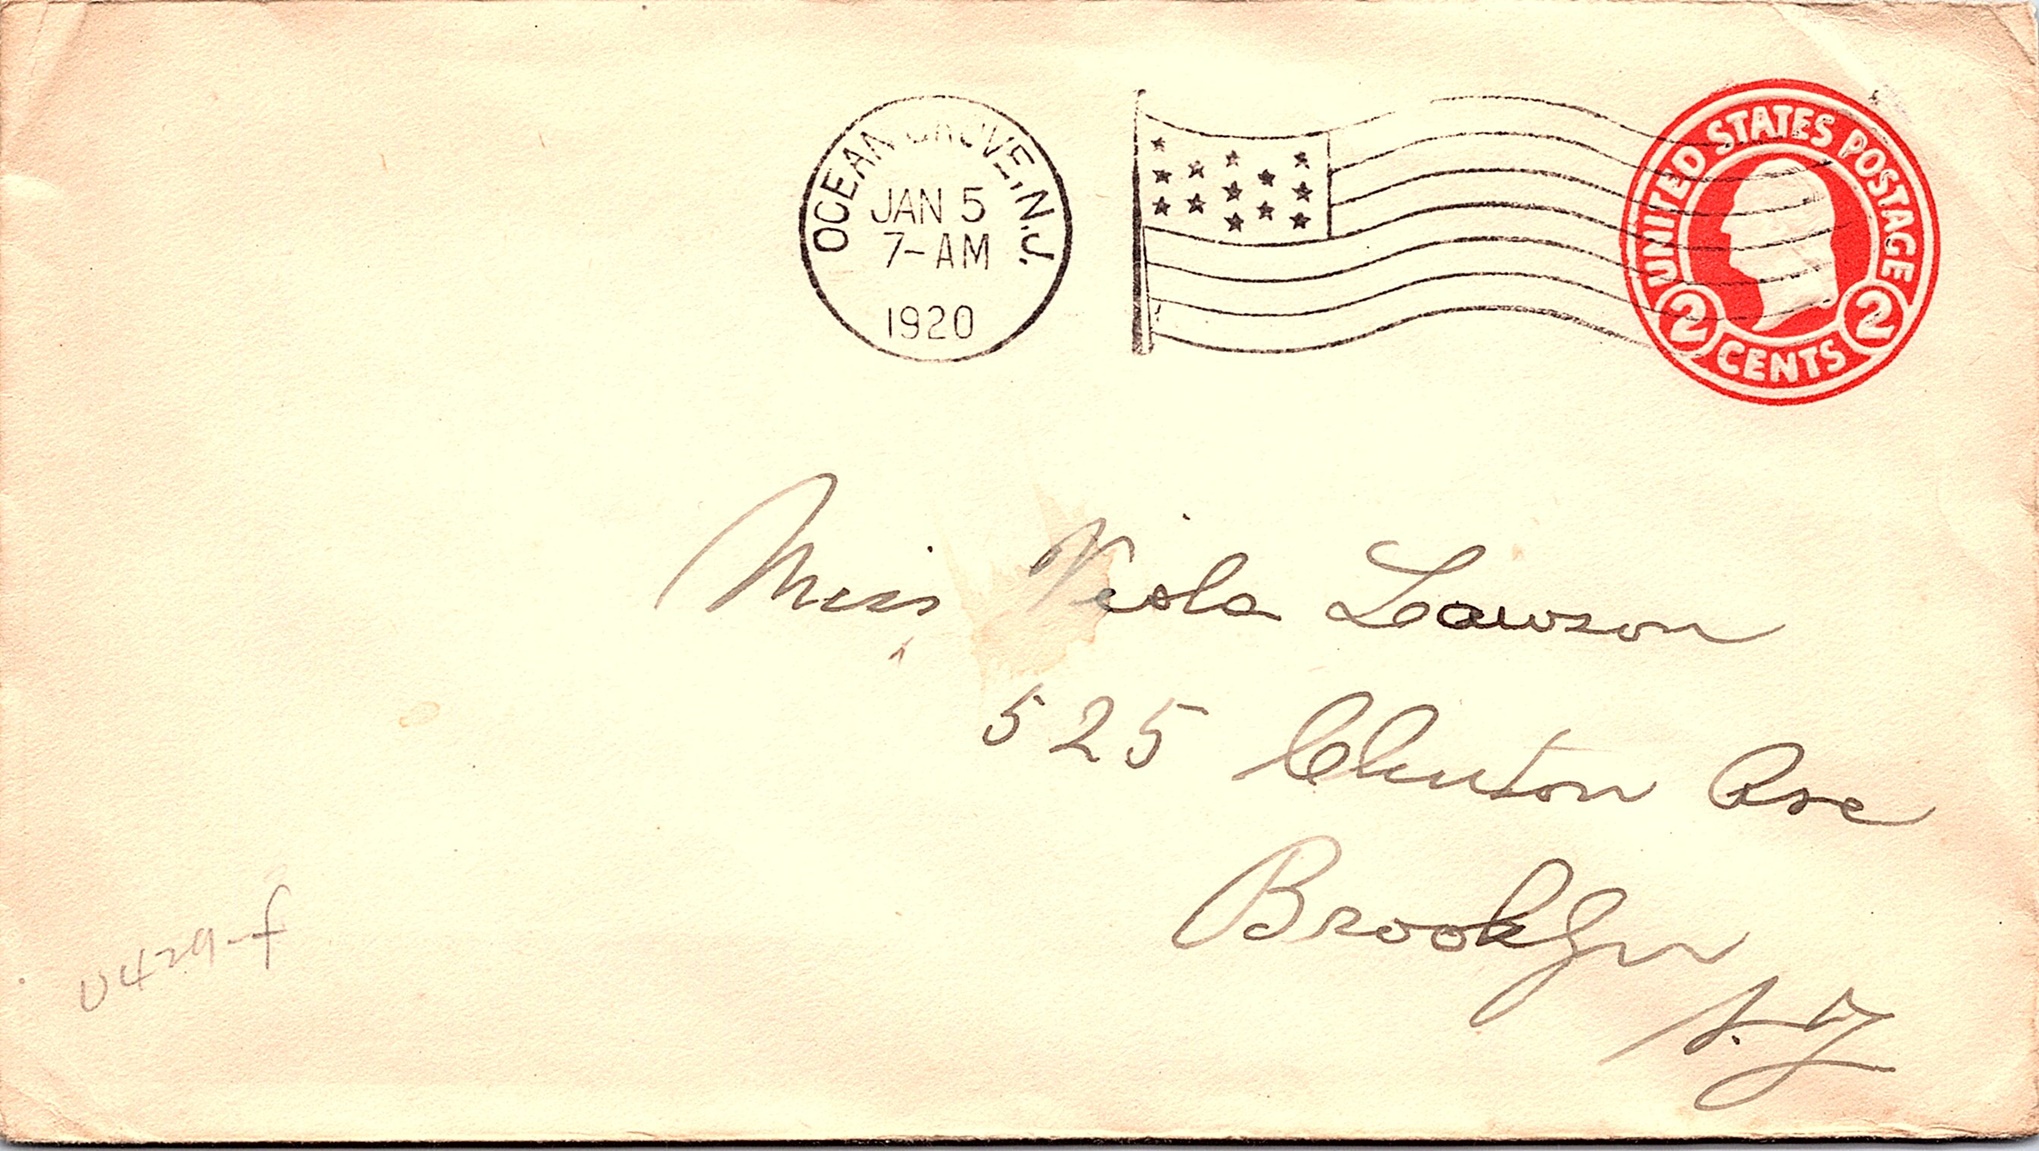 OCEAN GROVE, N.J.
JAN 5
7-AM
1920
UNITED STATES POSTAGE
2 CENTS 2
Miss Viola Lawson
525 Clinton Ave
Brooklyn
N.Y
U429-f